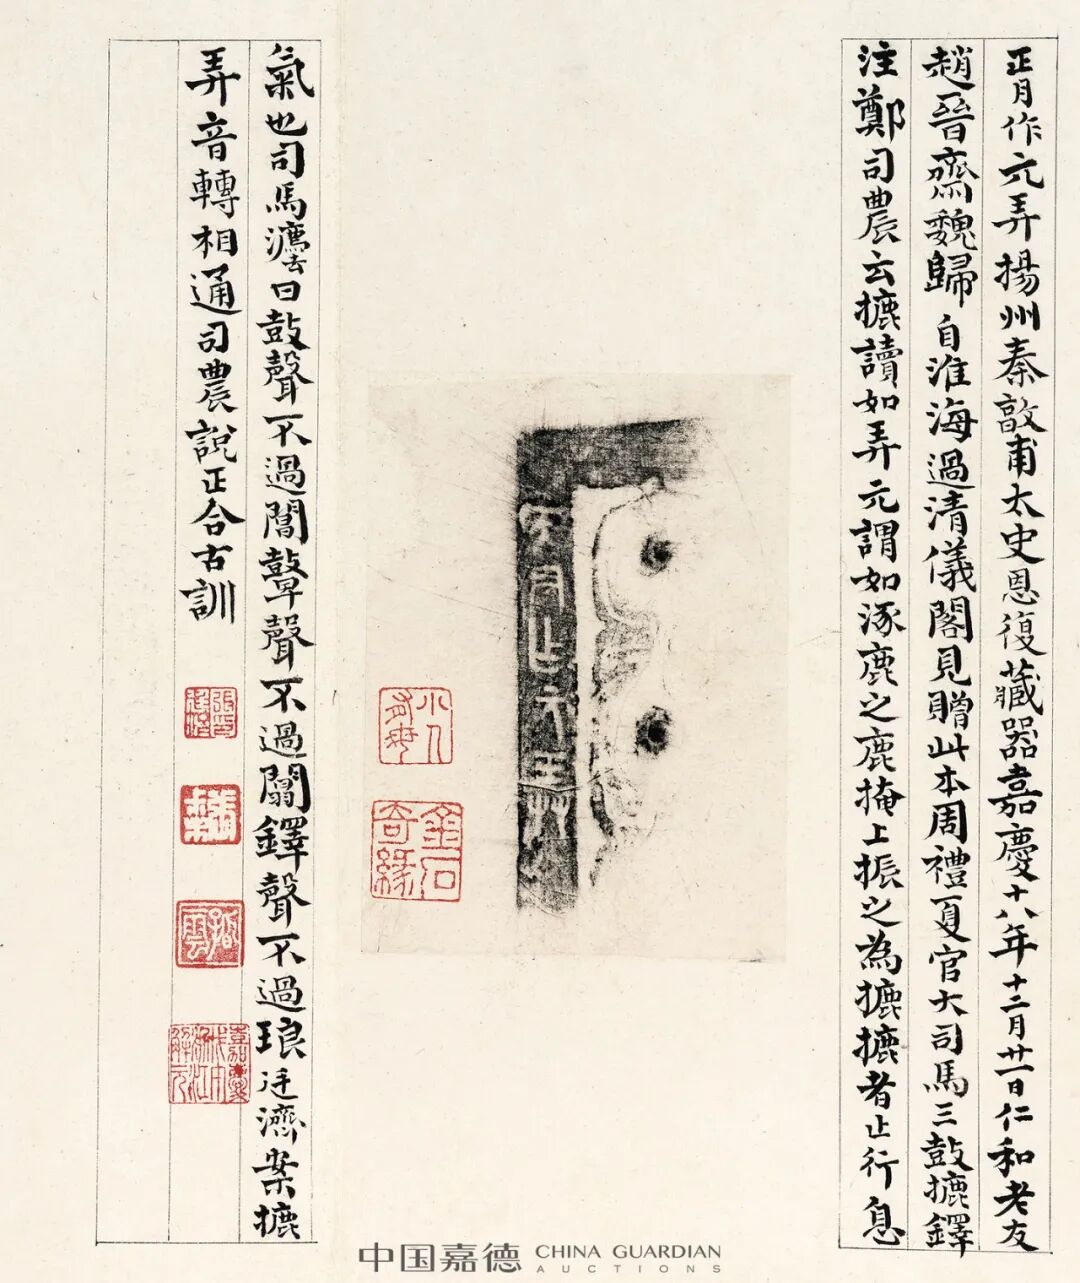 正月作元弄揚州秦敦甫太史恩復藏器嘉慶十八年十二月廿一日仁和老友
趙晉齋魏歸自淮海過清儀閣見贈此本周禮夏官大司馬三鼓摝鐸
注鄭司農云摝讀如弄元謂如涿鹿之鹿掩上振之為摝摝者止行息
氣也司馬灋曰鼓聲不過閶鼙聲不過闒鐸聲不過琅廷濟案摝
弄音轉相通司農說正合古訓
正月乍元弄
金石奇緣
嘉慶戊午浙江解元
中国嘉德 CHINA GUARDIAN
AUCTIONS